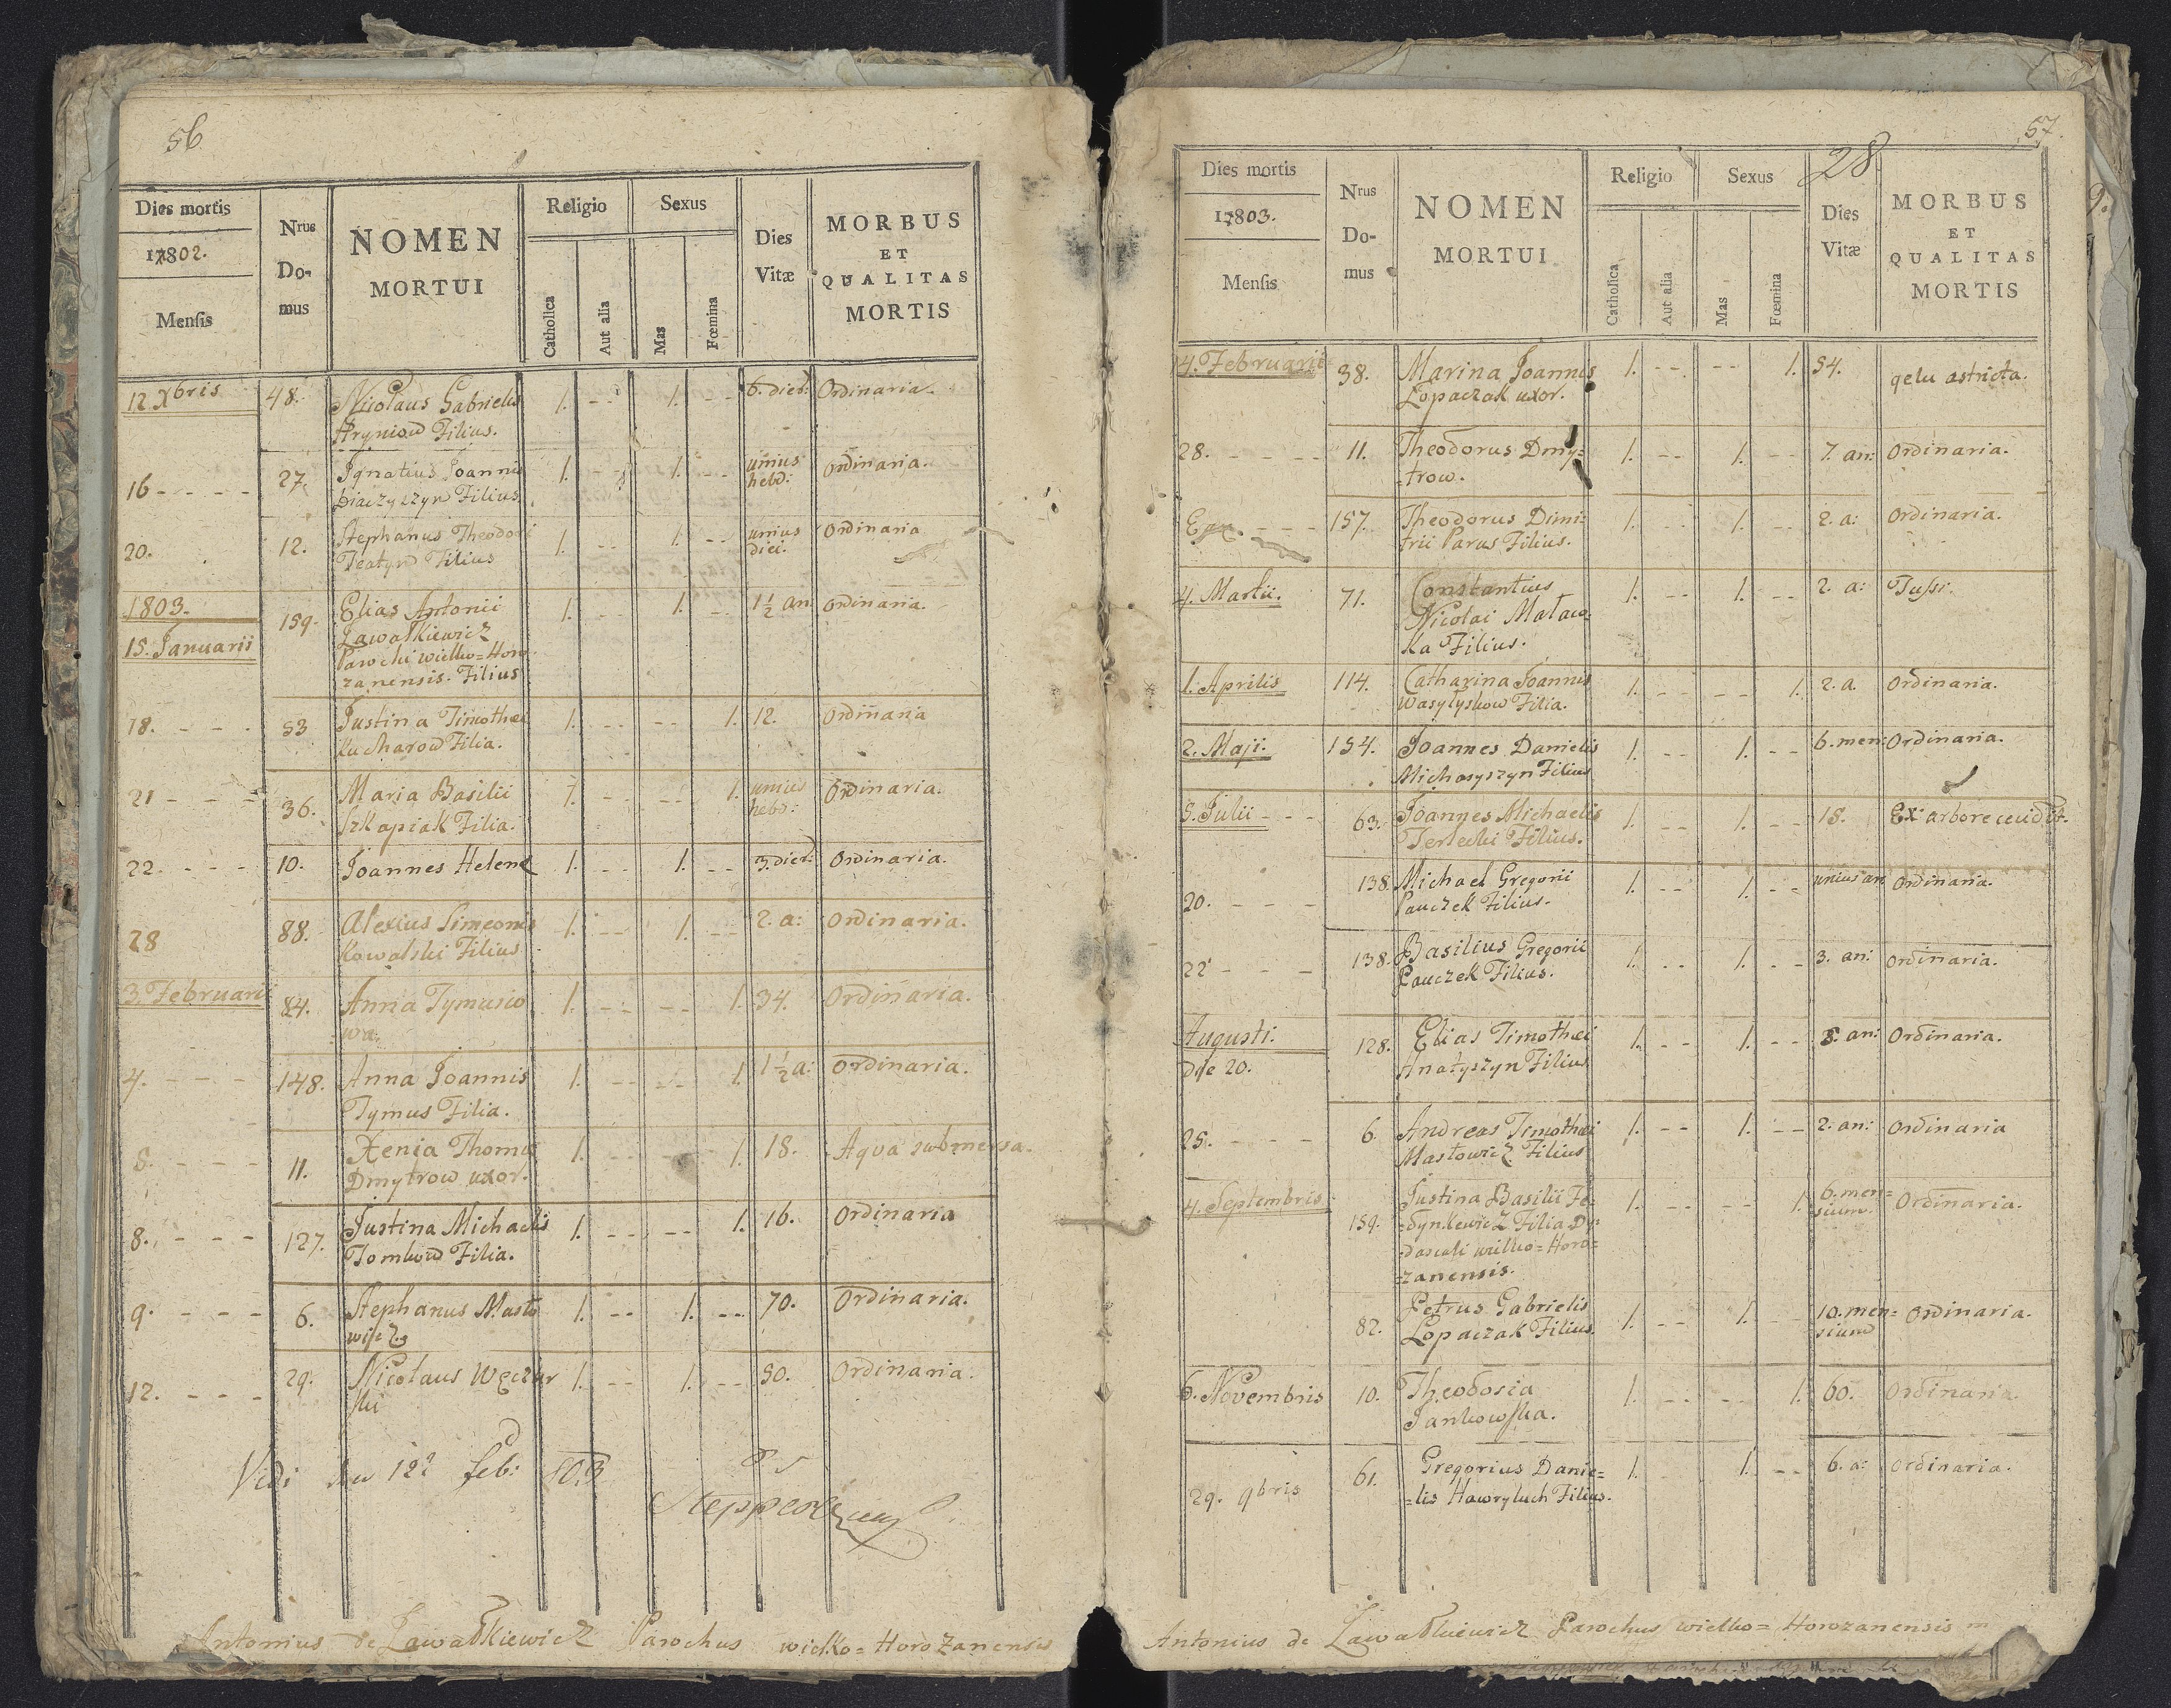 56
Dies mortis
Nrus Domus
NOMEN MORTUI
Religio
Sexus
Dies Vitæ
MORBUS ET QUALITAS MORTIS
1802.
Mensis
Catholica
Aut alia
Mas
Fœmina
12 Xbris 48. Nicolaus Gabrielis 1. -- 1. -- 6. dieb: Ordinaria.
Hryniow Filius.
16 - - - - 27. Ignatius Joannis 1. -- 1. -- unius Ordinaria.
Filius hebd:
20. 12. Stephanus Theodori 1. -- 1. -- unius Ordinaria
Teatyn Filius diei.
1803. 159. Elias Antonii 1. -- 1. -- 1½ an Ordinaria.
15. Januarii Ławatkiewicz
Parochi wielko=Horo
zanensis. Filius
18. - - - 53 Justina Timothei 1. -- -- 1. 12. Ordinaria
Kucharow Filia.
21 - - - 36. Maria Basilii 1. -- -- 1. unius Ordinaria.
Szkapiak Filia. hebd:
22. - - - 10. Joannes Helenæ 1. -- 1. -- 3. dieb: Ordinaria.
28 88. Alexius Simeonis 1. -- 1. -- 2. a: Ordinaria.
Kowalski Filius
3. Februarii 84. Anna Tymusio 1. -- -- 1. 34. Ordinaria.
wa.
4. - - - 148. Anna Joannis 1. -- -- 1. 1½ a: Ordinaria.
Tymus Filia.
8. - - - 11. Xenia Thomæ 1. -- -- 1. 18. Aqva submersa.
Dmytrow uxor.
8. - - - 127. Justina Michaelis 1. -- -- 1. 16. Ordinaria
Tomkow Filia.
9. - - - 6. Stephanus Masto 1. -- 1. -- 70. Ordinaria.
wicz
12. - - - 29. Nicolaus Węczur 1. -- 1. -- 50. Ordinaria.
ski
Vidi 12 Feb: 803
Antonius de Ławatkiewicz Parochus wielko=Horozanensis
57.
28
Dies mortis
Nrus Domus
NOMEN MORTUI
Religio
Sexus
Dies Vitæ
MORBUS ET QUALITAS MORTIS
1803.
Mensis
Catholica
Aut alia
Mas
Fœmina
14. Februarii 38. Marina Joannis 1. -- -- 1. 54. gelu astricta.
Łopaczak uxor.
28. - - - 11. Theodorus Dmy= 1. -- 1. -- 7. an: Ordinaria.
=trow.
157. Theodorus Dimi= 1. -- 1. -- 2. a: Ordinaria.
trii Parus Filius.
4. Martii. 71. Constantius 1. -- 1. -- 2. a: Tussi.
Nicolai Mataw=
ka Filius.
1. Aprilis 114. Catharina Joannis 1. -- -- 1. 2. a. Ordinaria.
Wasylyskow Filia.
2. Maji. 154. Joannes Danielis 1. -- 1. -- 6. men: Ordinaria.
Michasyszyn Filius
5. Julii - - - 63. Joannes Michaelis 1. -- 1. -- 15. Ex arbore cecidit.
Terlecki Filius.
20. - - - 138. Michael Gregorii 1. -- 1. -- unius an Ordinaria.
Pauczek Filius.
22 - - - 138. Basilius Gregorii 1. -- 1. -- 3. an: Ordinaria.
Pauczek Filius.
Augusti. 128. Elias Timothei 1. -- 1. -- 8. an: Ordinaria.
Die 20. Hnatyszyn Filius
25. - - - 6. Andreas Timothei 1. -- 1. -- 2. an: Ordinaria
Mastowicz Filius
4. Septembris 159. Justina Basilii Fe= 1. -- -- 1. 6. men= Ordinaria.
=dynkewicz Filia Dy= sium.
=dascali wielko=Horo=
=zanensis.
82. Petrus Gabrielis 1. -- 1. -- 10. men= Ordinaria.
Łopaczak Filius. sium
6. Novembris 10. Theodosia 1. -- -- 1. 60. Ordinaria.
Jankowska.
29. 9bris 61. Gregorius Danie= 1. -- 1. -- 6. a: Ordinaria.
=lis Hawryluch Filius.
Antonius de Ławatkiewicz Parochus wielko=Horozanensis